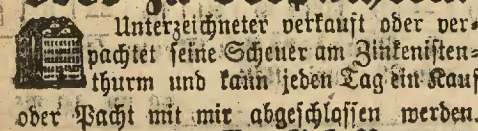 Unterzeichneter verkauft oder ver-
pachtet seine Scheuer am Zinkenisten-
thurm und kann jeden Tag ein Kauf
oder Pacht mit mir abgeschlossen werden.